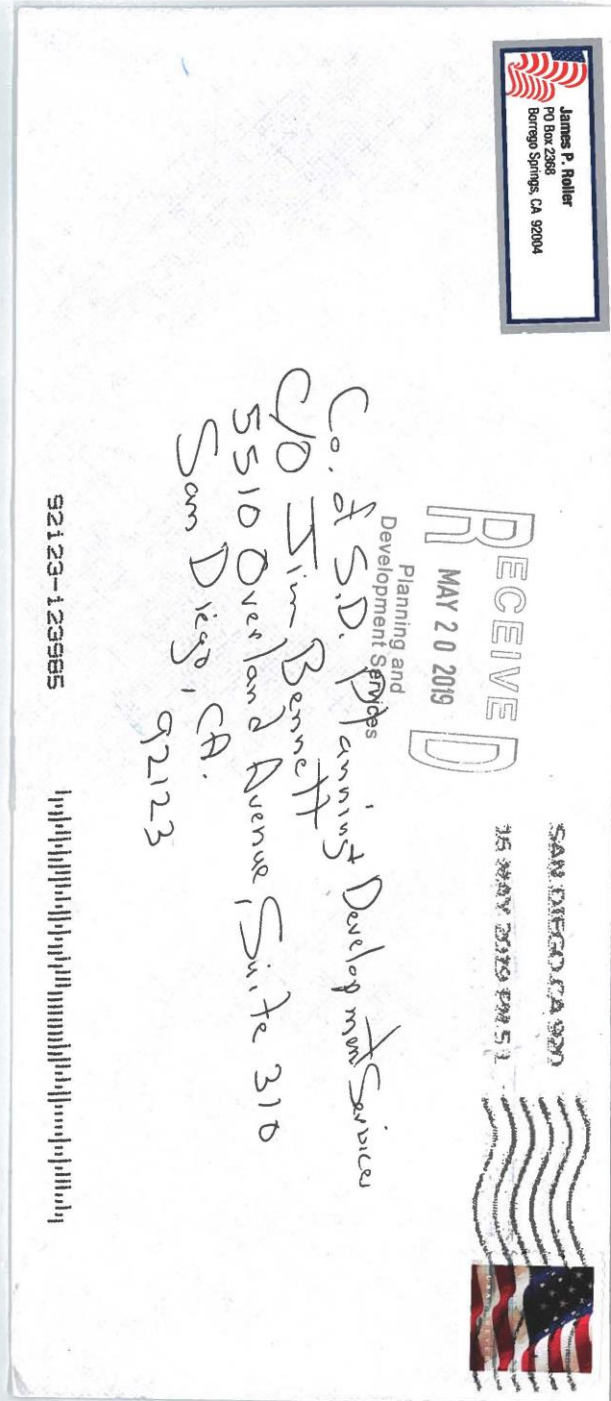 James P. Roller
PO Box 2368
Borrego Springs, CA 92004
SAN DIEGO CA 920
16 MAY 2019 PM 5 L
RECEIVED
MAY 20 2019
Planning and
Development Services
Co. of S.D. Planning & Development Services
C/O Jim Bennett
5510 Overland Avenue, Suite 310
San Diego, CA.
92123
92123-123985